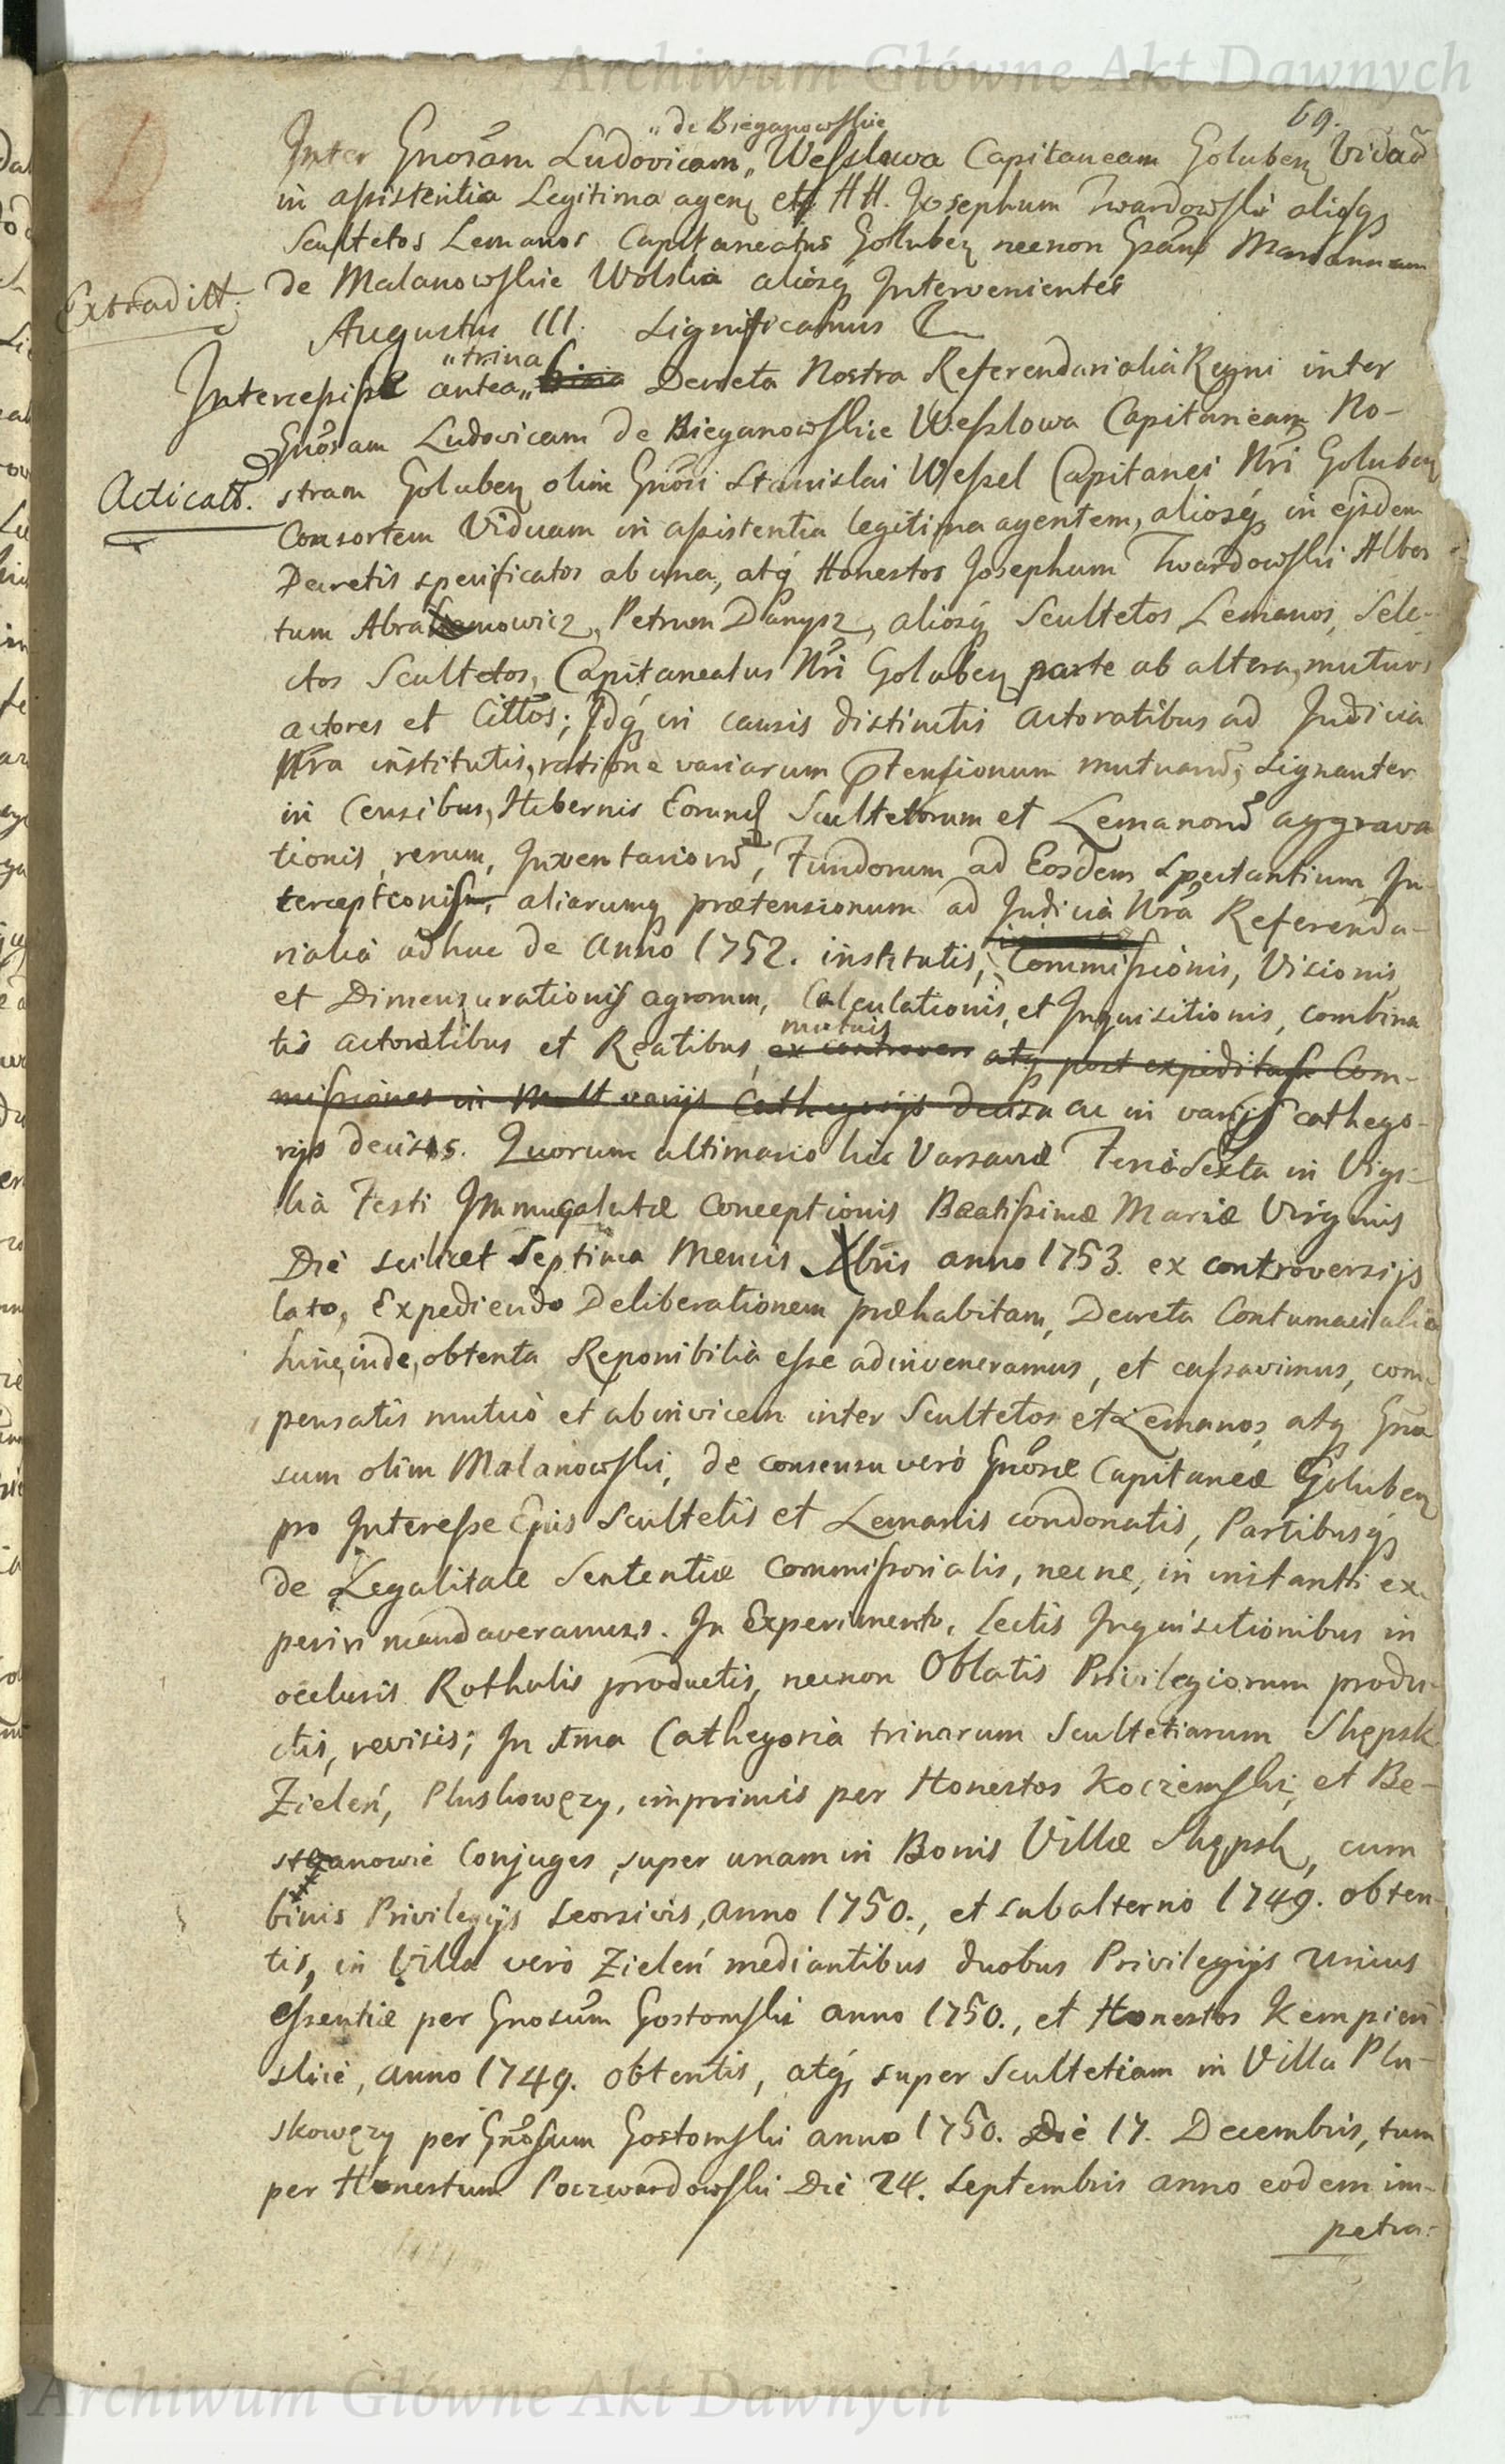 Archiwum Główne Akt Dawnych
69.
„de Bieganowskie
Inter Gnosam Ludovicam „ Wesslowa Capitaneam Goluben Viduā
in assistentia Legitima agen et HH. Josephum Twardowski aliosq
Scultetos Lemanos Capitaneatus Goluben necnon Gnam Mariannam
de Malanowskie Wolska aliosq Intervenientes
Extraditt.
Augustus III. Significamus
„trina
Intercessisse antea „ Decreta Nostra Referendarialia Regni inter
Gnosam Ludovicam de Bieganowskie Wesslowa Capitaneam No-
Acticatō.
stram Goluben olim Gnosi Stanislai Wessel Capitanei Nri Goluben
Consortem Viduam in assistentia legitima agentem, aliosq in ejsdem
Decretis specificatos ab una, atq Honestos Josephum Twardowski Alber
tum Abramowicz, Petrum Danysz, aliosq Scultetos Lemanos, Sele-
ctos Scultetos, Capitaneatus Nri Goluben parte ab altera, mutuos
actores et Cittos; Idq in causis distinctis Actoratibus ad Judicia
Nra institutis, ratione variarum Ptensionum mutuarū, signanter
in Censibus, Hibernis Eorund Scultetorum et Lemanorū aggrava
tionis, rerum, Inventariorū, Fundorum ad Eosdem Spectantium In
terceptionis, aliarumq prætensionum ad Judicia Nra Referenda-
rialia adhuc de Anno 1752. institutis, Commissionis, Visionis
et Dimensurationis agrorum, Calculationis, et Inquisitionis, combina
mutuis
tis actoratibus et Reatibus, ex controver atq post expeditas Com-
missiones in Mult varijs Cathegorijs decisa ac in varijs cathego-
rijs decisis. Quorum ultimario hic Varsaviæ Feria Sexta in Vigi-
lia Festi Immaculatæ Conceptionis Beatissimæ Mariæ Virginis
Die scilicet Septima Mensis Xbris anno 1753. ex controversijs
lato, Expediendo Deliberationem præhabitam, Decreta Contumacialia
hinc inde, obtenta Reponibilia esse adinveneramus, et cassavimus, com-
pensatis mutuò et ab invicem inter Scultetos et Lemanos, atq Gno
sum olim Malanowski, de consensu verò Gnosæ Capitaneæ Goluben
pro Interesse Ejus Scultetis et Lemanis condonatis, Partibusq
de Legalitate Sententiæ Commissorialis, necne, in instanti ex-
periri mandaveramus. In Experimento, Lectis Inquisitionibus in
occlusis Rothulis productis, necnon Oblatis Privilegiorum produ-
ctis, revisis; In 1ma Cathegoria trinarum Scultetiarum Skępsk
Zieleń, Pluskowęzy, imprimis per Honestos Koczemski, et Be-
stganowie Conjuges, super unam in Bonis Villæ Skępsk, cum
binis Privilegijs seorsivis, Anno 1750., et subalterno 1749. obten-
tis, in Villa verò Zieleń mediantibus duobus Privilegijs unius
essentiæ per Gnosum Gostomski anno 1750., et Honestos Kempień
skie, anno 1749. obtentis, atq super Scultetiam in Villa Plu-
skowęzy per Gnosum Gostomski anno 1750. Die 17. Decembris, tum
per Honestum Poczwardowski Die 24. Septembris anno eodem im-
petra-
Archiwum Główne Akt Dawnych